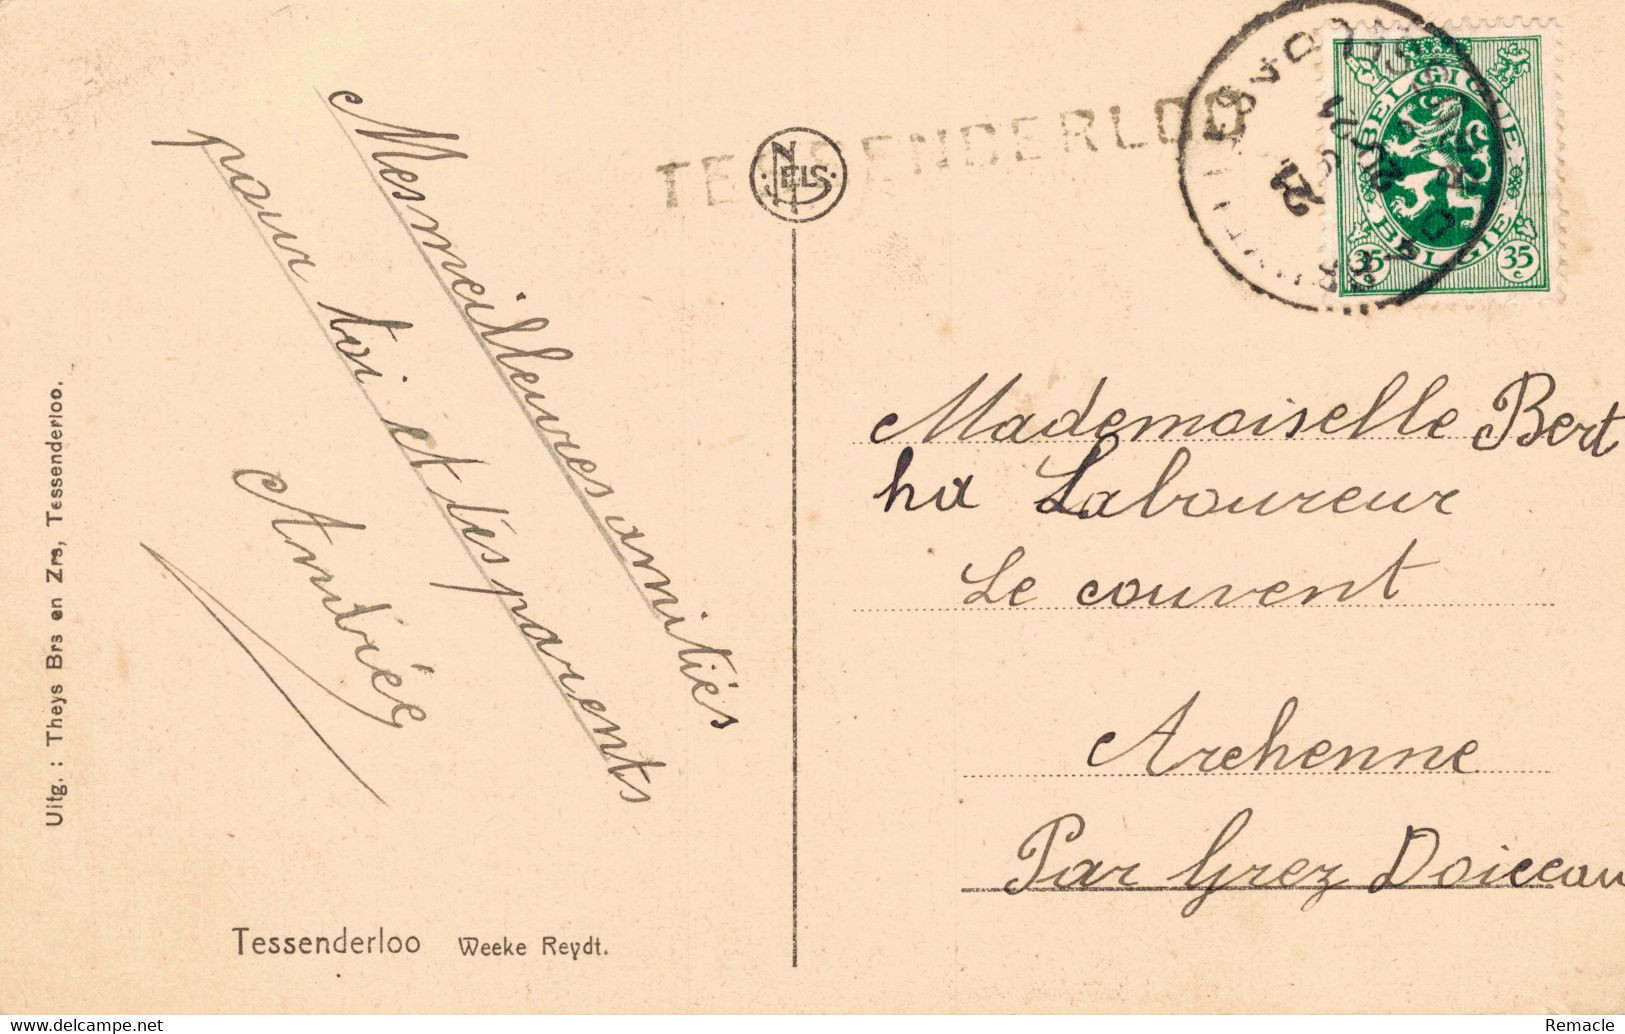 Mes meilleures amitiés
pour toi et tés parents
Andrée
Uitg. : Theys Brs en Zrs, Tessenderloo.
Tessenderloo Weeke Reydt.
NELS
TESSENDERLOO
BELGIQUE
BELGIE
35 c 35 c
Mademoiselle Bert
ha Laboureur
Le couvent
Archenne
Par Grez Doiceau
delcampe.net
Remacle